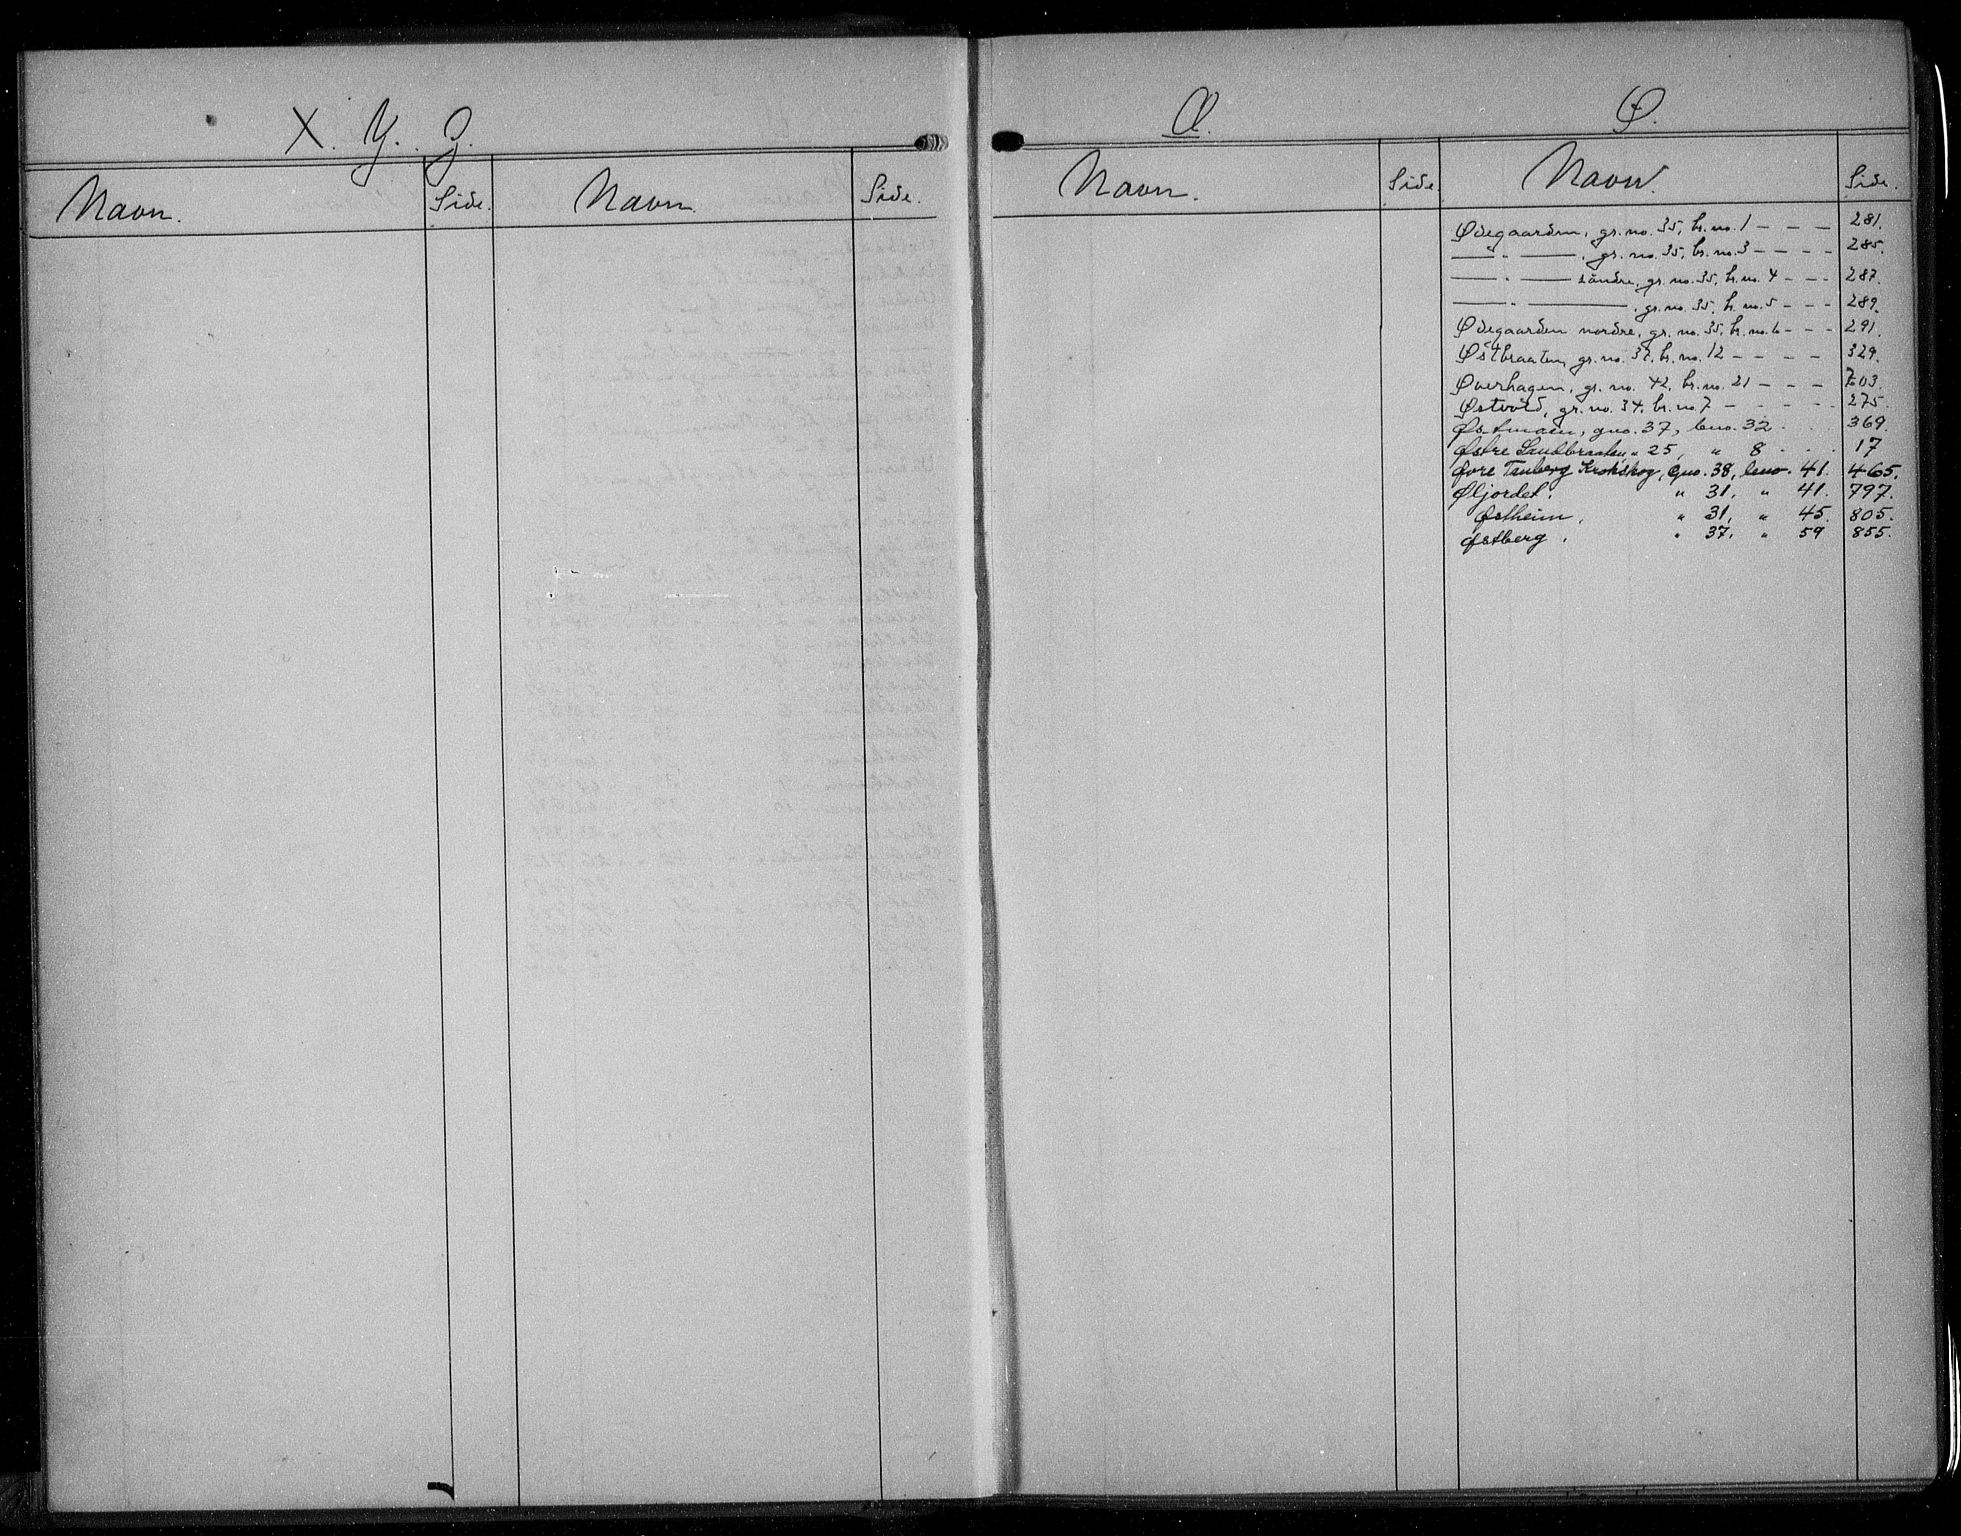 X. Y.
Navn. Side. Navn. Side.
Ø. Ø.
Navn. Side. Navn. Side.
Ødegaarden, gr. no. 35, br. no. 1 - - - 281.
—— " —— , gr. no. 35, br. no. 3 - - - - 285.
—— " —— söndre, gr. no. 35, br. no. 4 - - - 287.
—— " —— , gr. no. 35, br. no. 5 - - - 289.
Ødegaarden nordre, gr. no. 35, br. no. 6 - - - 291.
Østbraaten, gr. no. 37, br. no. 12 - - - - 329.
Øverhagen, gr. no. 42, br. no. 21 - - - 703.
Østvold, gr. no. 34, br. no. 7 - - - - - 275.
Østmoen, gno. 37, bno. 32 . . . 369.
Østre Sandbraaten, " 25, " 8 . . . 17
Øvre Tanberg Krokskog, Gno. 38, bno. 41. 465.
Øljordet. " 31, " 41. 797.
Østheim, " 31, " 45. 805.
Østberg, " 37, " 59 855.